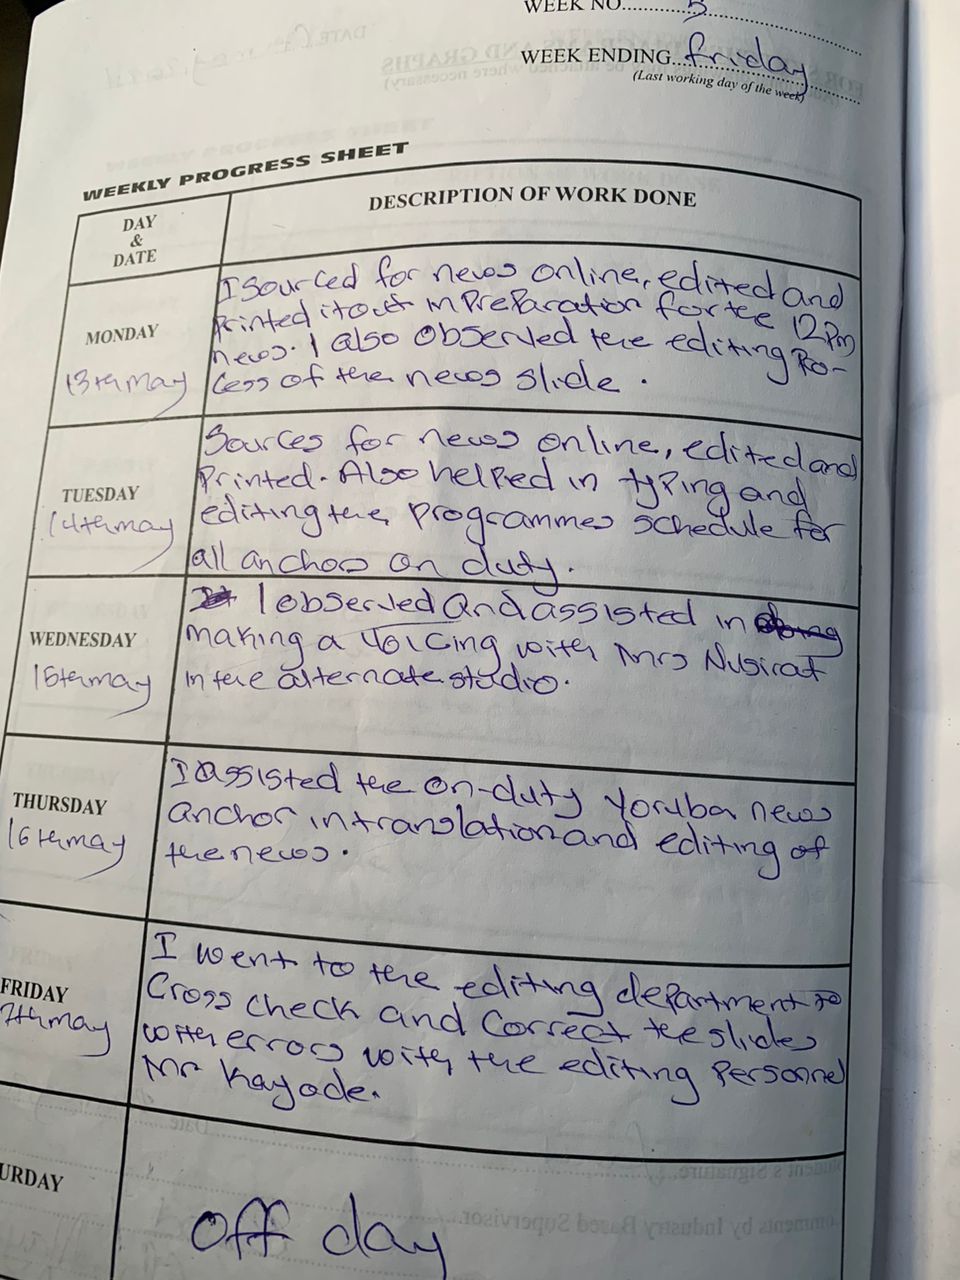 WEEK NO. 5
WEEK ENDING Friday
(Last working day of the week)
WEEKLY PROGRESS SHEET
DAY
&
DATE
DESCRIPTION OF WORK DONE
MONDAY
13th may
I sourced for news online, edited and
printed it out in preparation for the 12pm
news. I also observed the editing Pro-
cess of the news slide.
TUESDAY
14th may
Sources for news online, edited and
Printed. Also helped in typing and
editing the programmes schedule for
all anchors on duty.
WEDNESDAY
15th may
I observed and assisted in
making a voicing with Mrs Nusirat
in the alternate studio.
THURSDAY
16th may
I assisted the on-duty Yoruba news
anchor in translation and editing of
the news.
FRIDAY
17th may
I went to the editing department to
Cross check and correct the slides
with errors with the editing Personnel
Mr Kayode.
URDAY
Off day